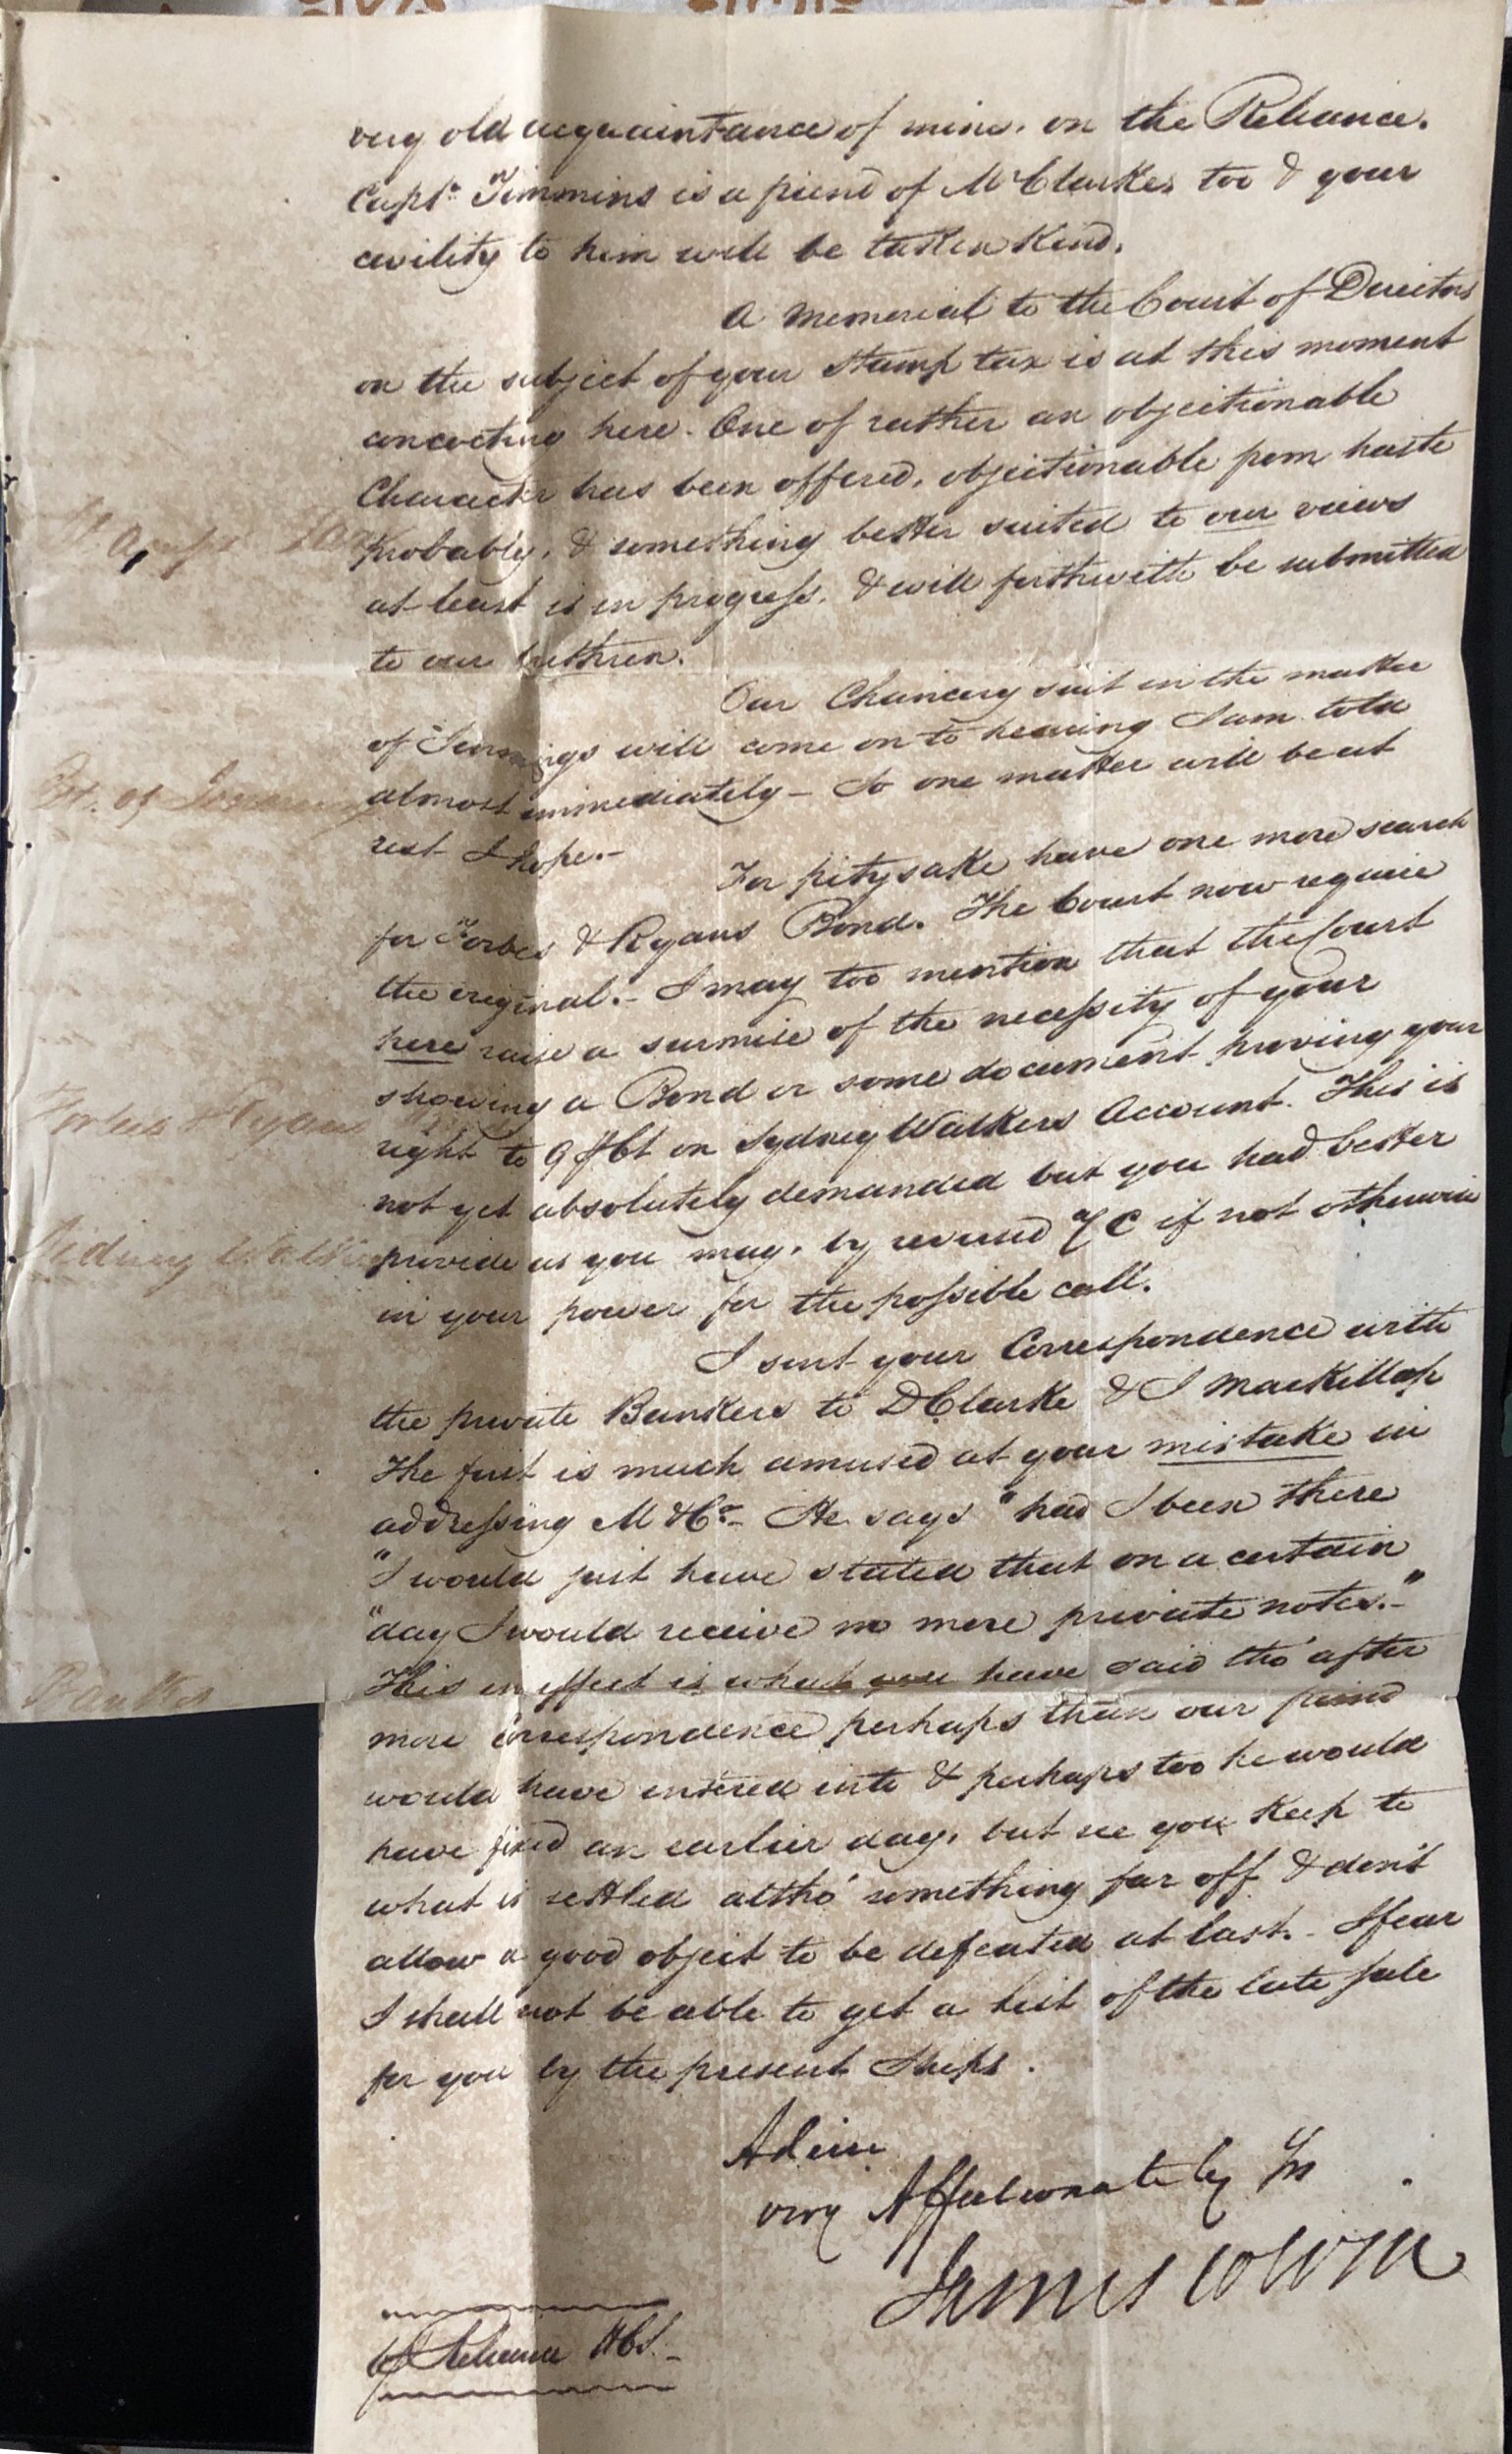 very old acquaintance of mine. on the Reliance.
Captn. Timmins is a friend of Mr Clarkes too & your
civility to him will be taken kind.
A Memorial to the Court of Directors
on the subject of your Stamp tax is at this moment
concocting here. One of rather an objectionable
Character has been offered, objectionable from haste
probably, & something better suited to our views
at least is in progress. & will forthwith be submitted
to our brethren.
Our Chancery suit in the matter
of Jennings will come on to hearing I am told
almost immediately - So one matter will be at
rest I hope.-
For pity sake have one more search
for Forbes & Ryans Bond. The Court now require
the original.- I may too mention that the Court
here raise a surmise of the necessity of your
showing a Bond or some document proving your
right to 9 PCt on Sydney Walkers Account. This is
not yet absolutely demanded but you had better
provide as you may, by revised A/C if not otherwise
in your power for the possible call.
I sent your Correspondence with
the private Bankers to D Clarke & J Mackillop
The first is much amused at your mistake in
addressing M & Co.- He says "had I been there
"I would just have stated that on a certain
"day I would receive no more private notes.-"
This in effect is what you have said tho' after
more correspondence perhaps than our friend
would have entered into & perhaps too he would
have fixed an earlier day, but see you keep to
what is settled altho' something far off & don't
allow a good object to be defeated at last.- I fear
I shall not be able to get a list of the late sale
for you by the present Ships.
Adieu
very Affectionately Yrs
James Colvin
Reliance HCS.-
Stamp Tax
Et. of Jennings
Forbes & Ryans
Sidney Walker
Banks